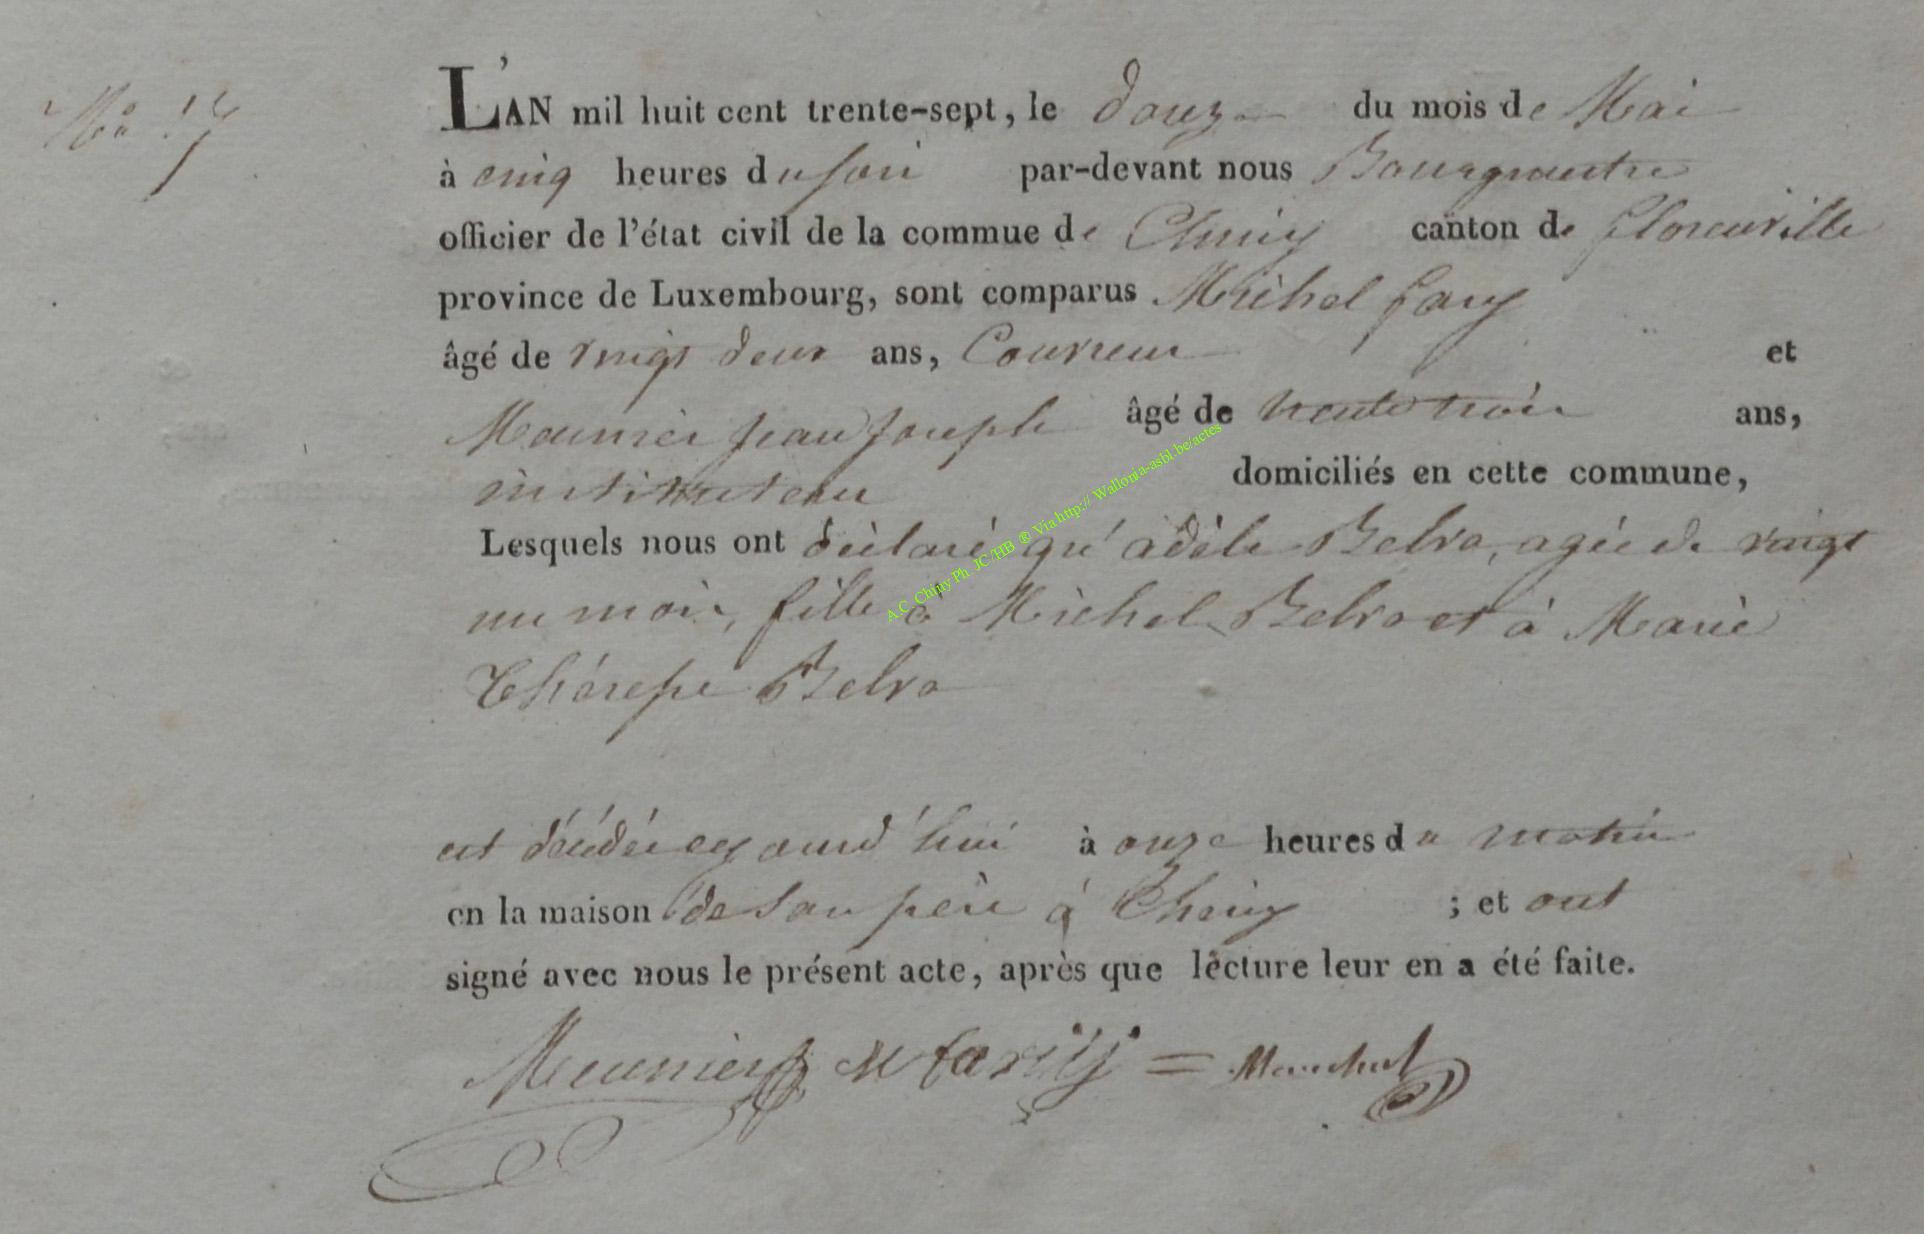 No 17
L'AN mil huit cent trente-sept, le douze du mois de Mai
à cinq heures du soir par-devant nous Bourgmestre
officier de l'état civil de la commue de Chiny canton de florenville
province de Luxembourg, sont comparus Michel fary
âgé de vingt deux ans, Couvreur et
Meunier jean joseph âgé de trente trois ans,
instituteur domiciliés en cette commune,
Lesquels nous ont déclaré qu'adèle Belva, agée de vingt
un mois, fille à Michel Belva et à Marie
Thérèse Belva
est décédée aujourd'hui à onze heures du matin
en la maison de son père à Chiny ; et ont
signé avec nous le présent acte, après que lecture leur en a été faite.
Meunier M farÿ = Marchal
A.C. Chiny Ph. JC/HB ® Via http:// Wallonia-asbl.be/actes